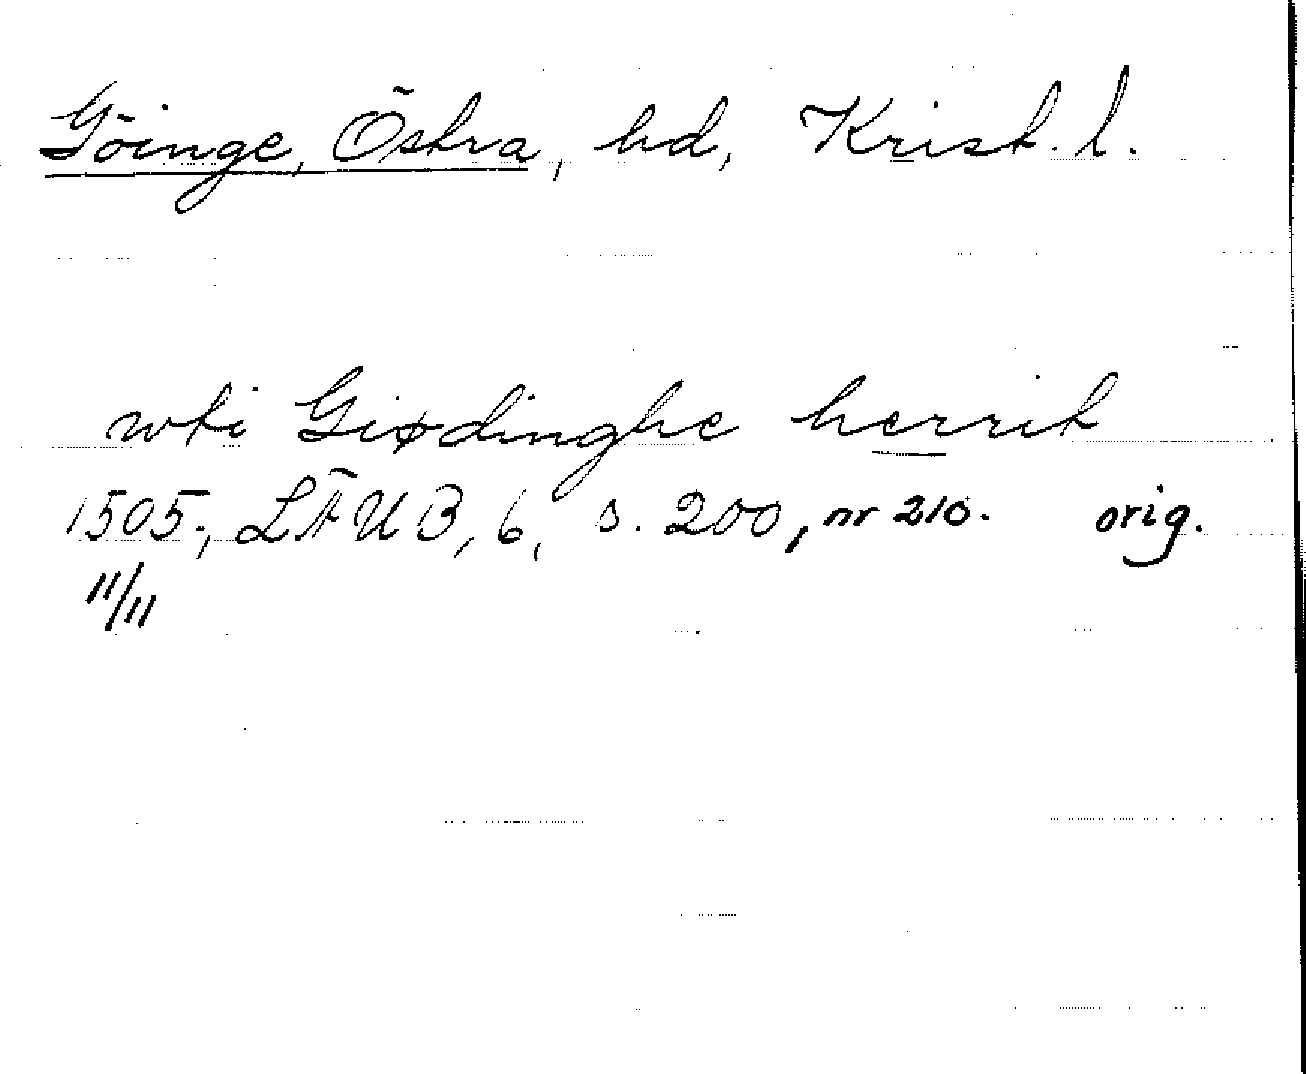 Göinge, Östra, hd, Krist. l.
wti Giødinghe herrit
1505; LÄUB, 6, s. 200, nr 210. orig.
11/11